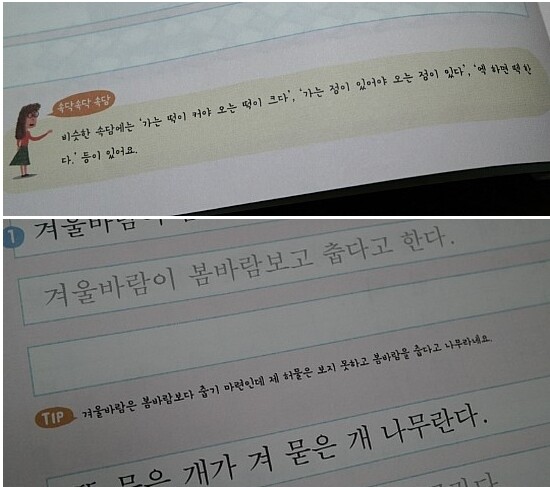 속닥속닥 속담
비슷한 속담에는 '가는 떡이 커야 오는 떡이 크다', '가는 정이 있어야 오는 정이 있다', '엑 하면 떽 한
다.' 등이 있어요.
1 겨울바람이
겨울바람이 봄바람보고 춥다고 한다.
TIP 겨울바람은 봄바람보다 춥기 마련인데 제 허물은 보지 못하고 봄바람을 춥다고 나무라네요.
묻은 개가 겨 묻은 개 나무란다.